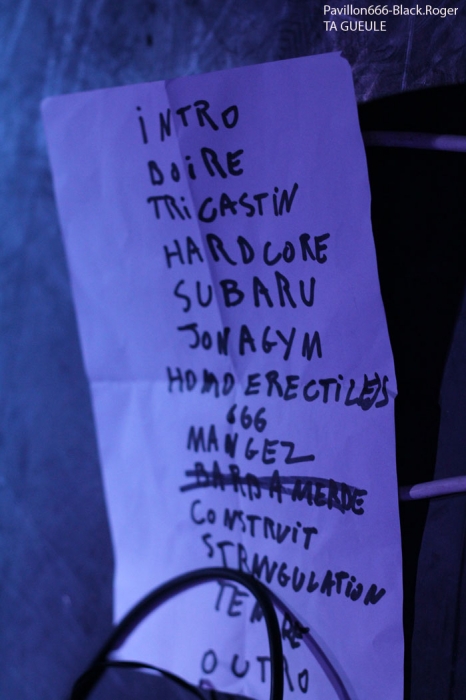 Pavillon666-Black.Roger
TA GUEULE
INTRO
BOIRE
TRICASTIN
HARDCORE
SUBARU
JONAGYM
HOMO ERECTILES
666
MANGEZ
BARBAMERDE
CONSTRUIT
STRANGULATION
OUTRO